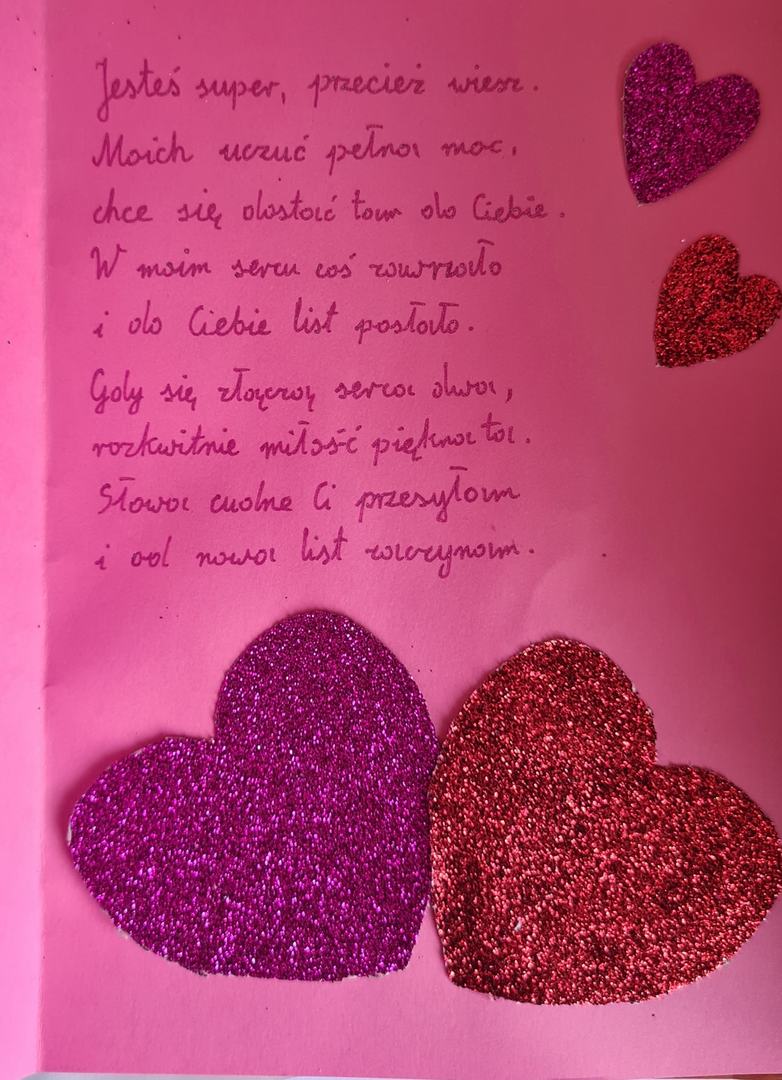 Jesteś super, przecież wiesz.
Moich uczuć pełna moc,
chce się dostać tam do Ciebie.
W moim sercu coś zawrzało
i do Ciebie list posłało.
Gdy się złączą serca dwa,
rozkwitnie miłość piękna ta.
Słowa cudne Ci przesyłam
i od nowa list zaczynam.